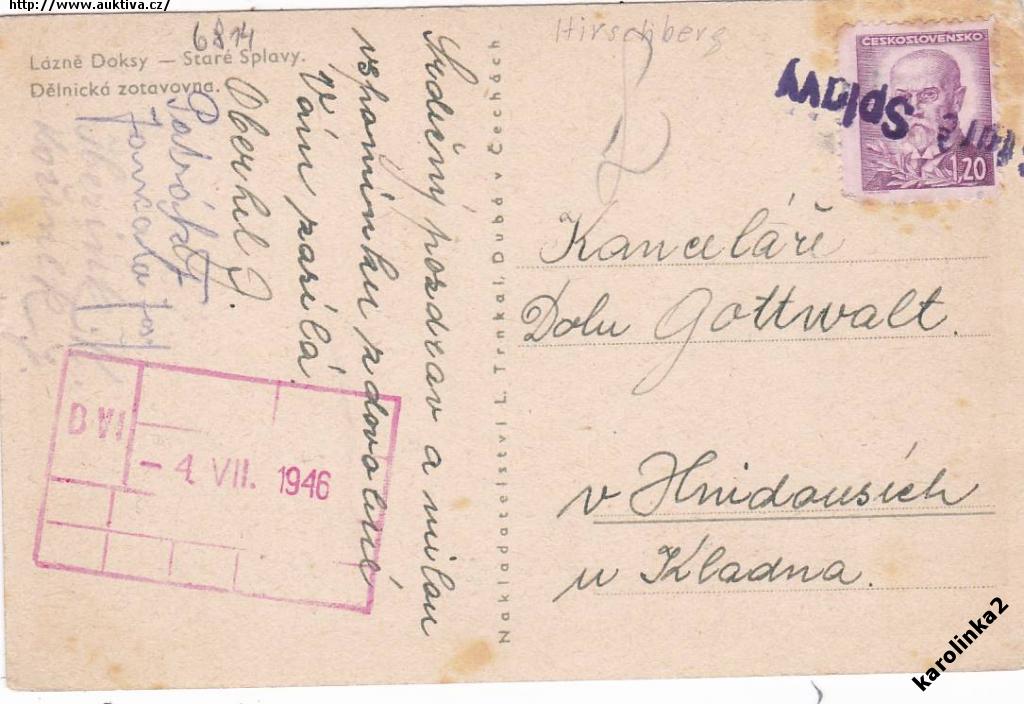 http://www.auktiva.cz/
6814
Lázně Doksy — Staré Splavy.
Dělnická zotavovna.
Srdečný pozdrav a milou
vzpomínku z dovolené
Vám zasílá
Oberhel J.
Nakladatelství L. Trnka, Dubá v Čechách
Hirschberg
ČESKOSLOVENSKO
1,20
Staré Splavy
Kanceláře
Dolu Gottwalt.
v Hnidousích
u Kladna.
B VI
- 4. VII. 1946
karolinka2